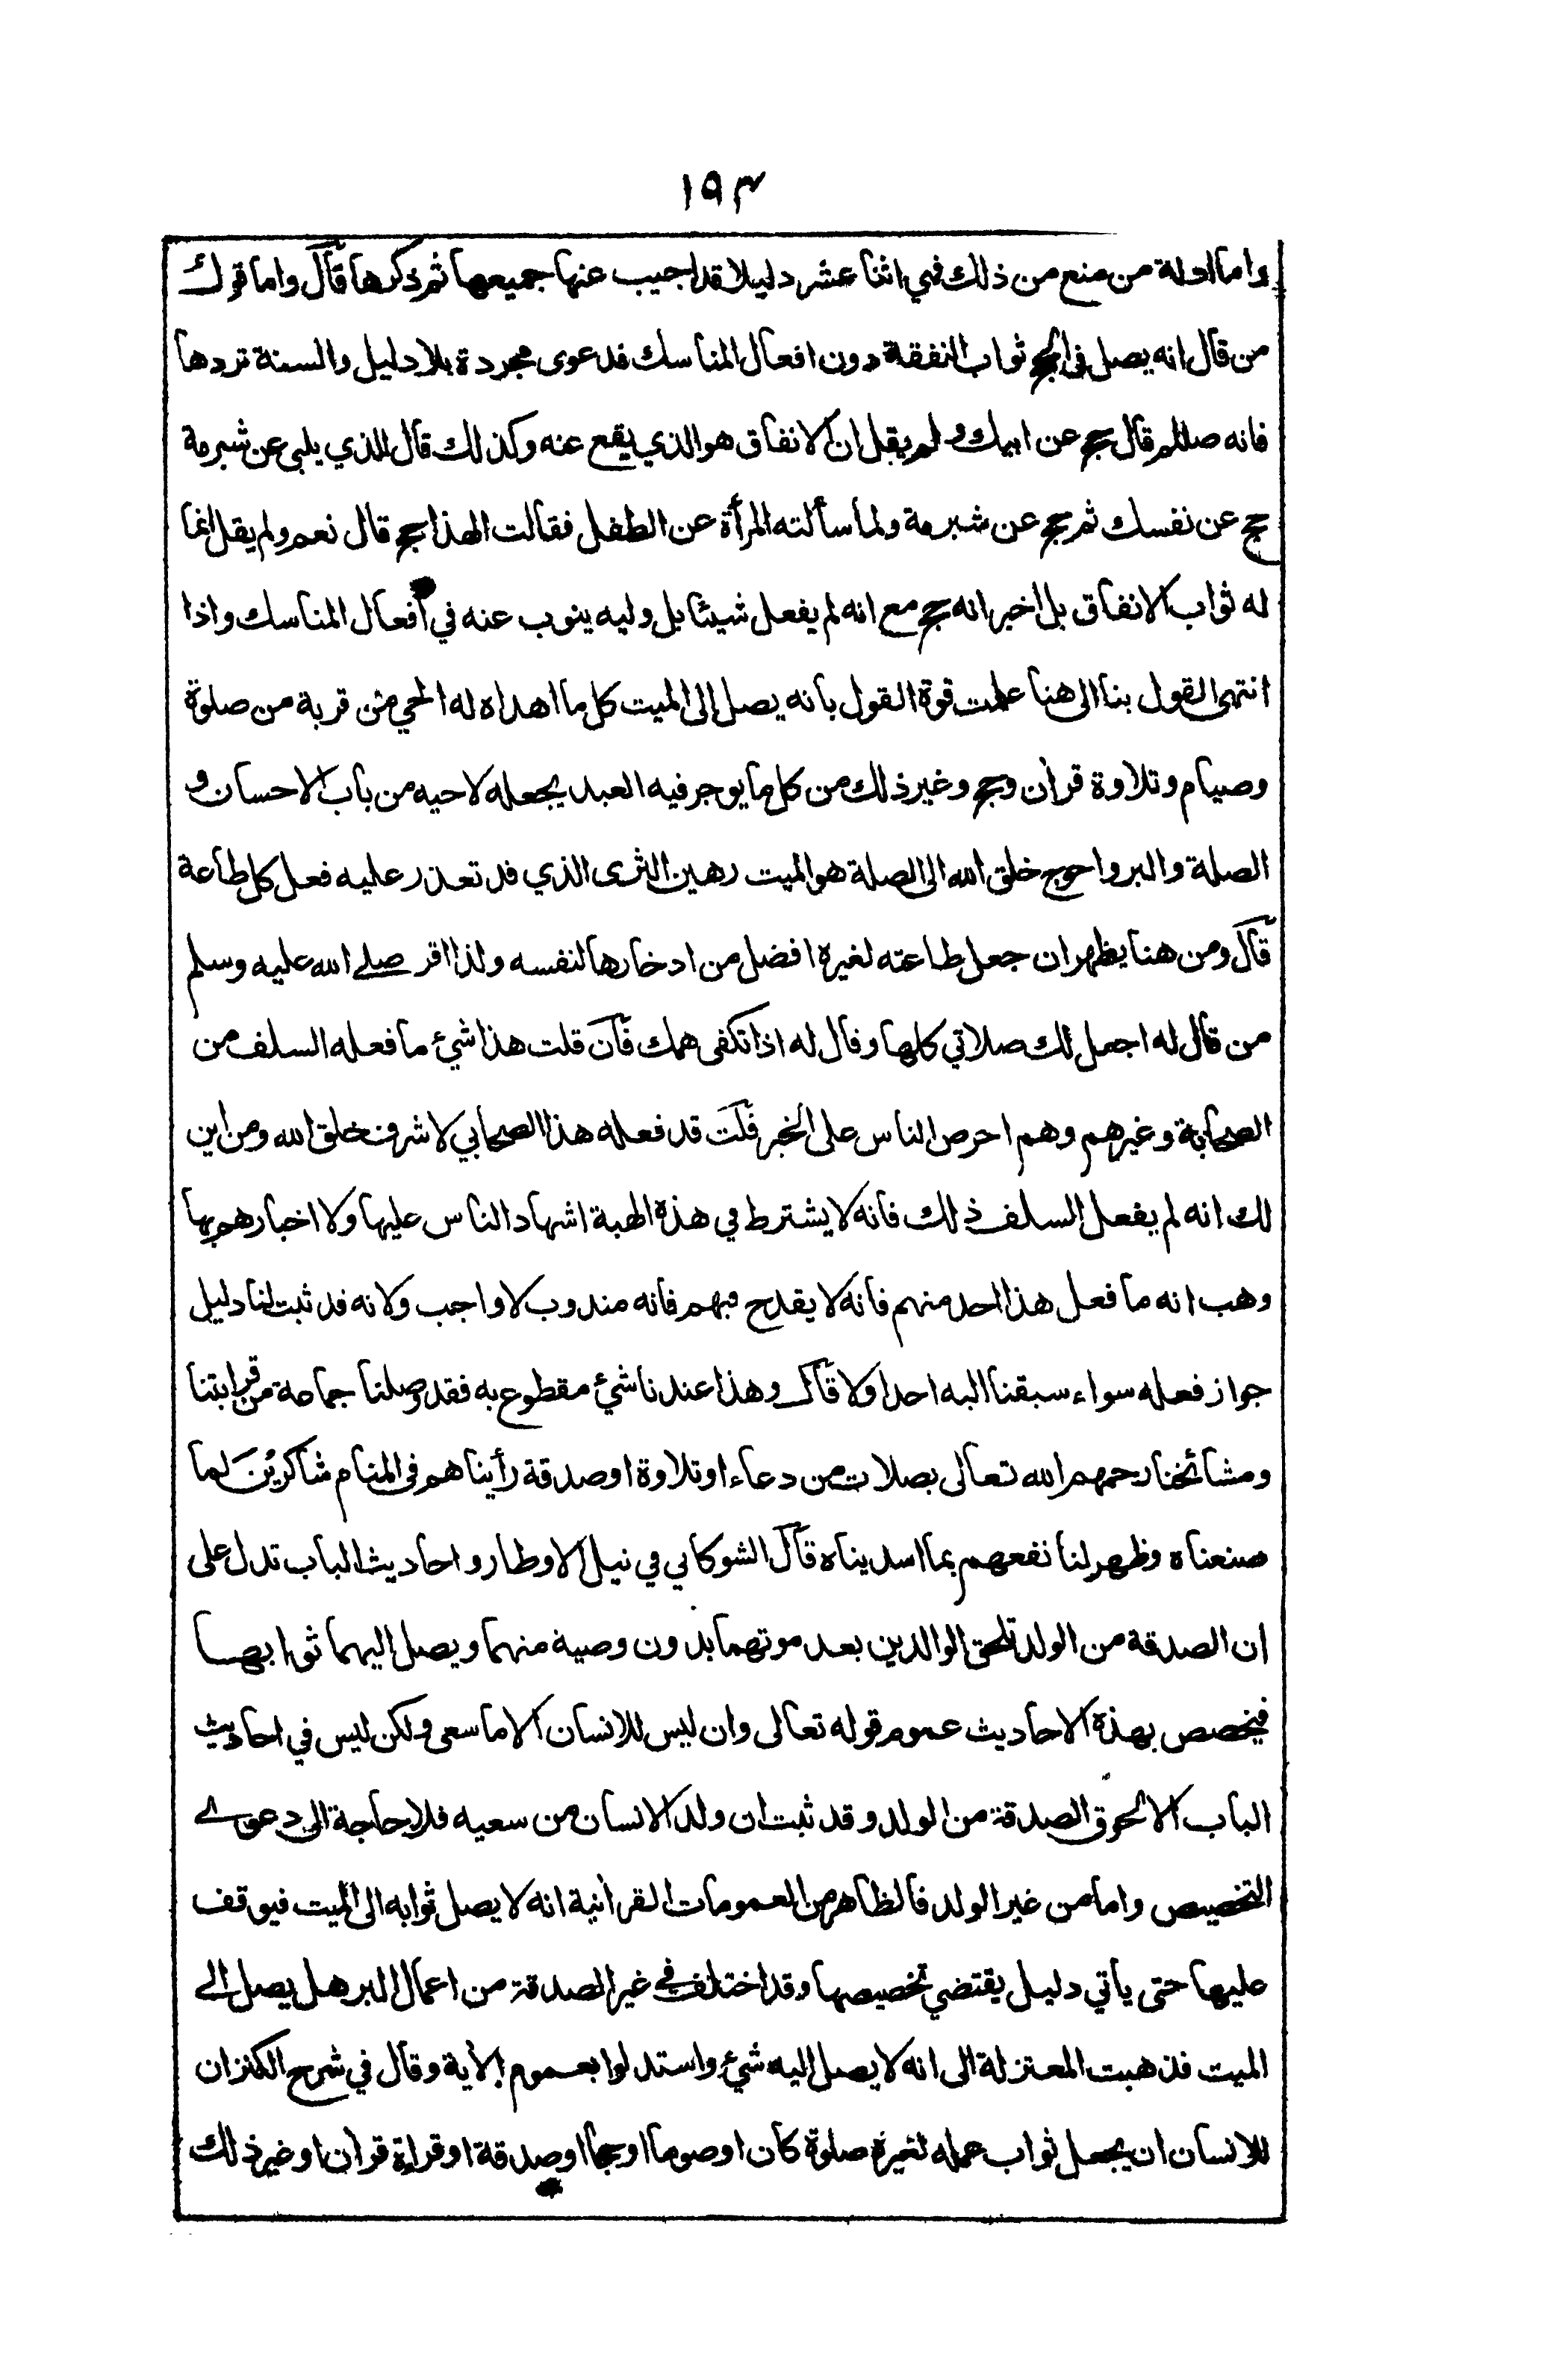 ١٩٣
واما ادلة من منع من ذلك فهي اثنا عشر دليلا قد اجيب عنها جميعها ثم ذكرها قال واما قول
من قال انه يصل في الحج ثواب النفقة دون افعال المناسك فدعوى مجردة بلا دليل والسنة تردها
فانه صللم قال حج عن ابيك ولم يقل ان الانفاق هو الذي يقع عنه وكذلك قال للذي يلبي عن شبرمة
حج عن نفسك ثم حج عن شبرمة ولما سألته المرأة عن الطفل فقالت الهذا حج قال نعم ولم يقل انما
له ثواب الانفاق بل اخبر انه حج مع انه لم يفعل شيئا بل وليه ينوب عنه في أفعال المناسك واذا
انتهى القول بنا الى هنا علمت قوة القول بانه يصل الى الميت كل ما اهداه له الحي من قربة من صلوة
وصيام وتلاوة قرأن وحج وغير ذلك من كل ما يوجر فيه العبد يجعله لاخيه من باب الاحسان و
الصلة والبر واحوج خلق الله الى الصلة هو الميت رهين الثرى الذي قد تعذر عليه فعل كل طاعة
قال ومن هنا يظهر ان جعل طاعته لغيره افضل من ادخارها لنفسه ولذا اقر صلے الله عليه وسلم
من قال له اجعل لك صلاتي كلها وقال له اذا تكفى همك فان قلت هذا شيء ما فعله السلف من
الصحابة وغيرهم وهم احرص الناس على الخير قلت قد فعله هذا الصحابي لاشرف خلق الله ومن اين
لك انه لم يفعل السلف ذلك فانه لا يشترط في هذه الهبة اشهاد الناس عليها ولا اخبارهم بها
وهب انه ما فعل هذا احد منهم فانه لا يقدح فيهم فانه مندوب لا واجب ولانه قد ثبت لنا دليل
جواز فعله سواء سبقنا اليه احد اولا قال وهذا عندنا شيء مقطوع به فقد وصلنا جماعة من قرابتنا
ومشائخنا رحمهم الله تعالى بصلات من دعاء او تلاوة او صدقة رأيناهم في المنام شاكرين لما
صنعناه وظهر لنا نفعهم بما اسديناه قال الشوكاني في نيل الاوطار واحاديث الباب تدل على
ان الصدقة من الولد تلحق الوالدين بعد موتهما بدون وصية منهما ويصل اليهما ثوابها
فيخصص بهذه الاحاديث عموم قوله تعالى وان ليس للانسان الا ما سعى ولكن ليس في احاديث
الباب الا لحوق الصدقة من الولد وقد ثبت ان ولد الانسان من سعيه فلا حاجة الى دعوے
التخصيص واما من غير الولد فالظاهر من العمومات القرأنية انه لا يصل ثوابه الى الميت فيوقف
عليها حتى يأتي دليل يقتضي تخصيصها وقد اختلف في غير الصدقة من اعمال البر هل يصل الے
الميت فذهبت المعتزلة الى انه لا يصل اليه شيء واستدلوا بعموم الأية وقال في شرح الكنز ان
للانسان ان يجعل ثواب عمله لغيره صلوة كان او صوما او حجا او صدقة او قراءة قرأن او غير ذلك